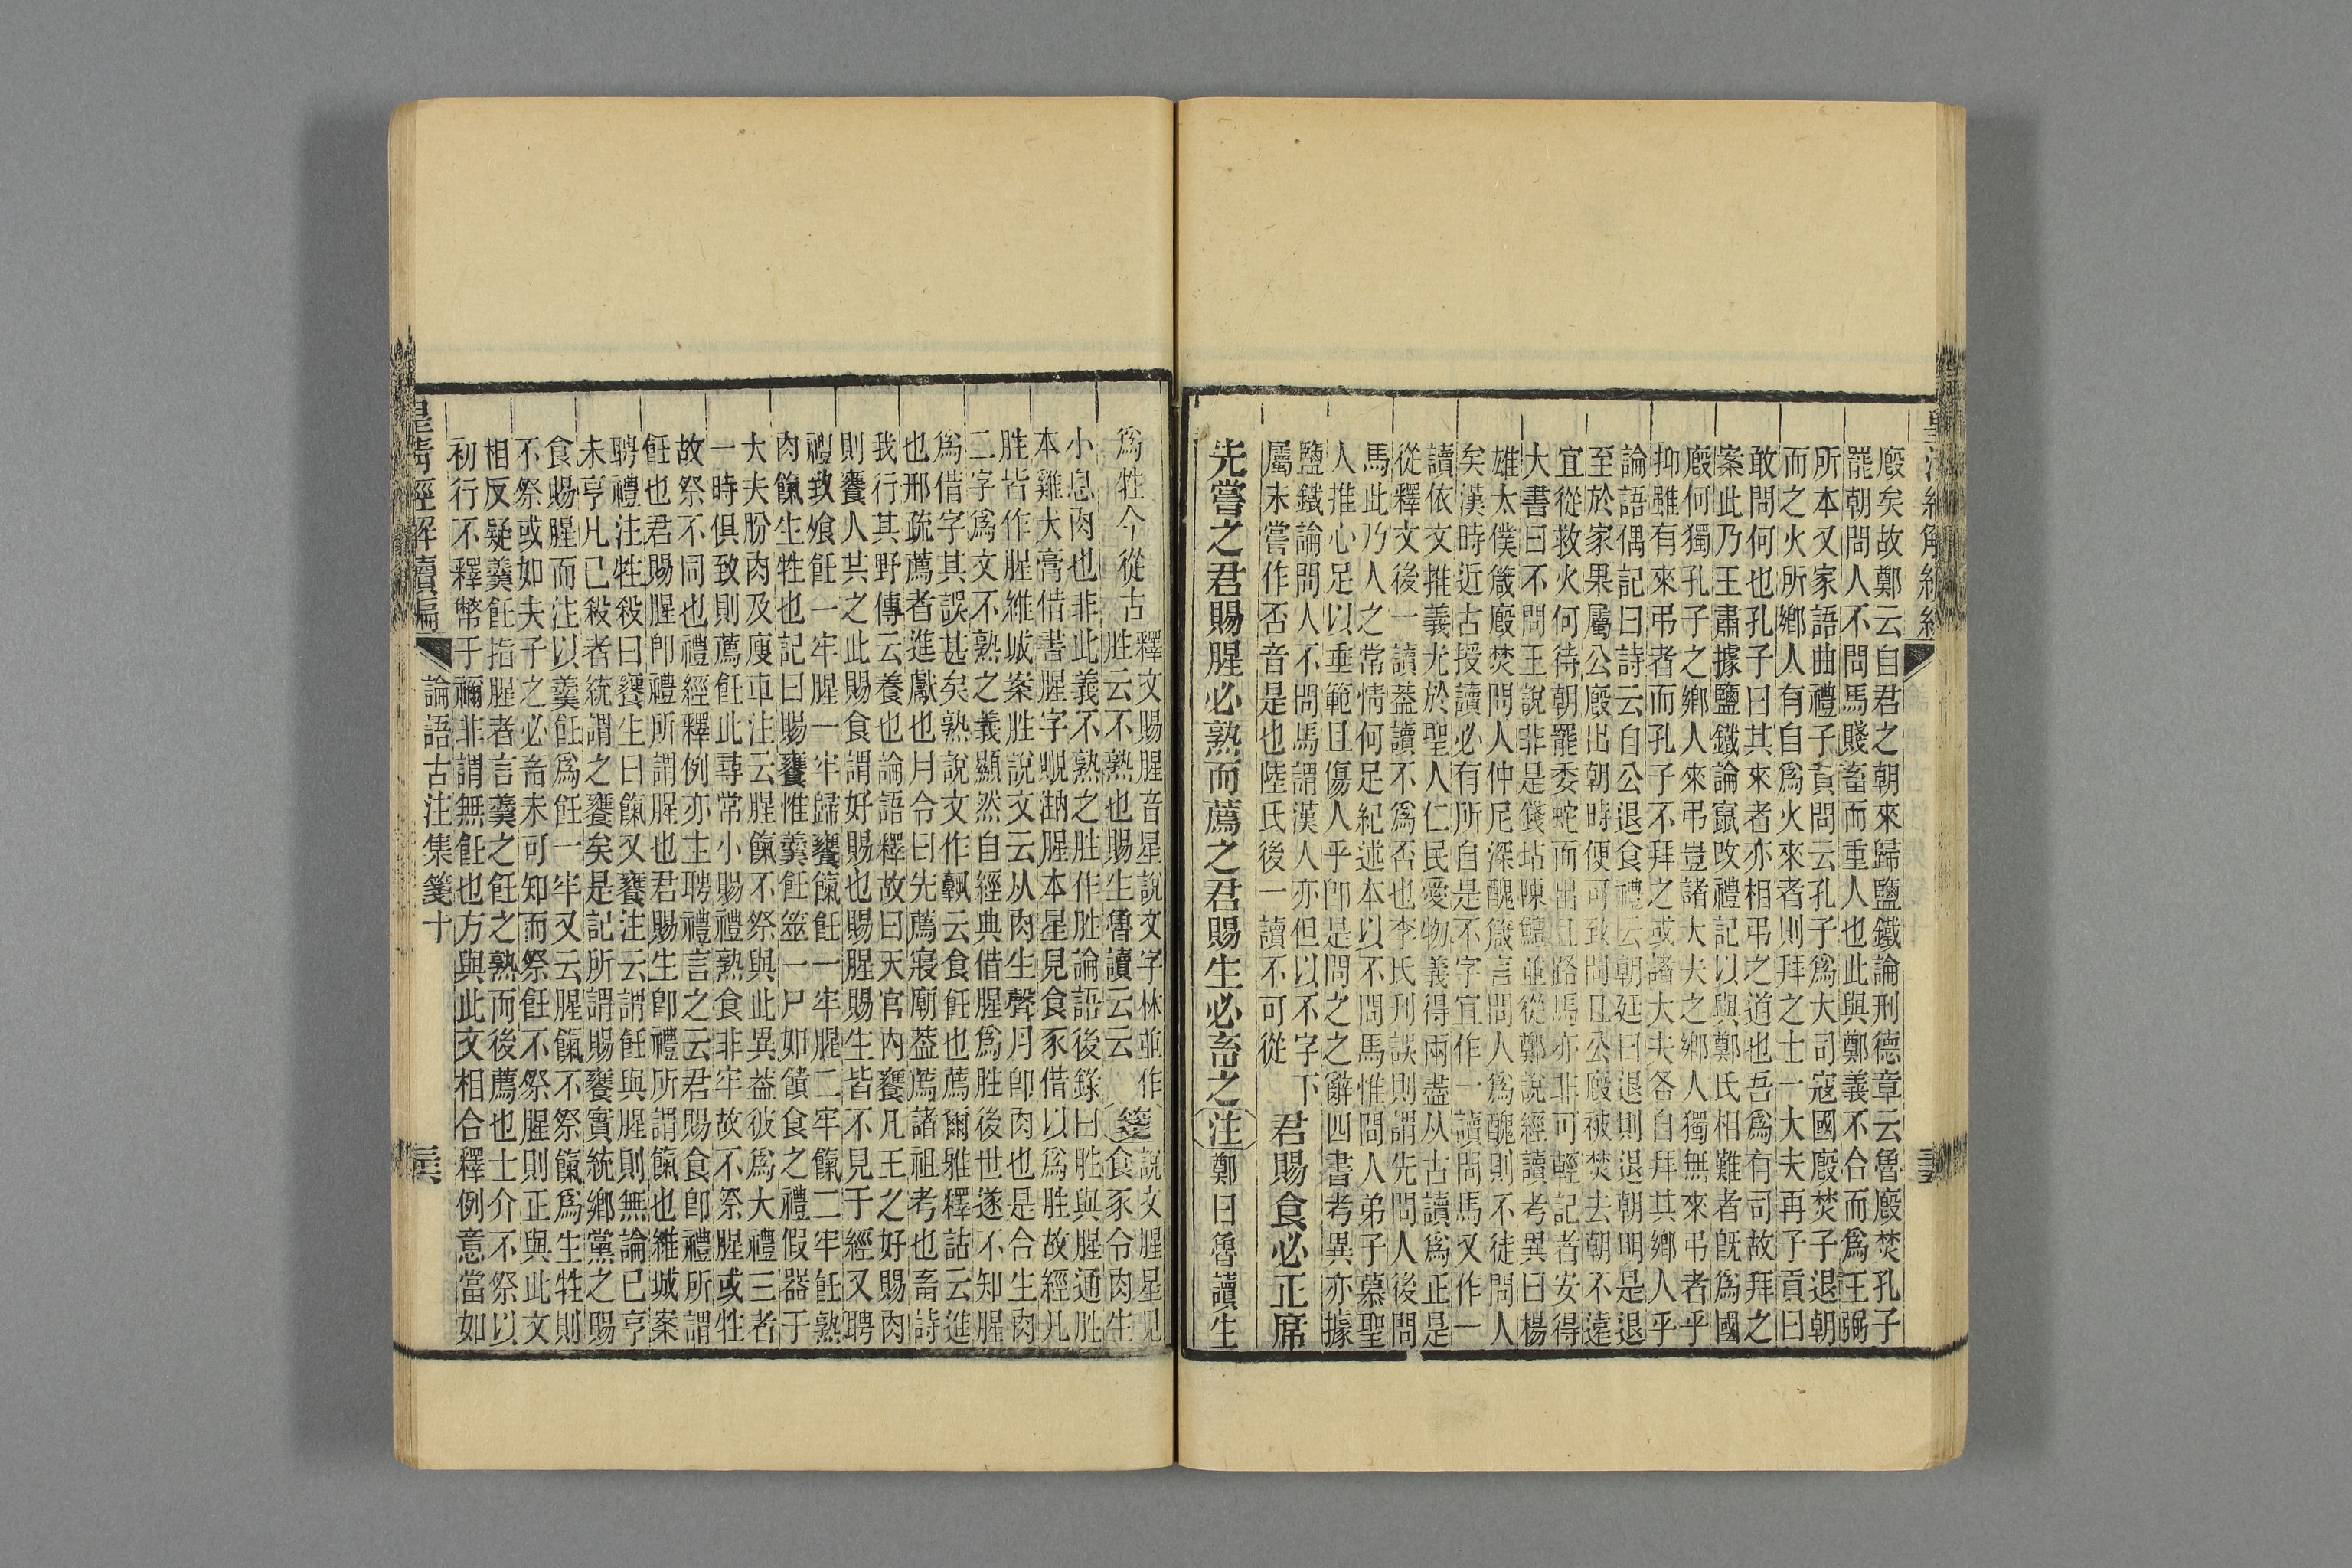 廄矣故鄭云自君之朝來歸鹽鐵論刑德章云魯廄焚孔子
罷朝問人不問馬賤畜而重人也此與鄭義不合而爲王弼
所本又家語曲禮子貢問云孔子爲大司寇國廄焚子退朝
而之火所鄉人有自爲火來者則拜之士一大夫再子貢曰
敢問何也孔子曰其來者亦相弔之道也吾爲有司故拜之
案此乃王肅據鹽鐵論竄改禮記以與鄭氏相難者旣爲國
廄何獨孔子之鄉人來弔豈諸大夫之鄉人獨無來弔者乎
抑雖有來弔者而孔子不拜之或諸大夫各自拜其鄉人乎
論語偶記曰詩云自公退食禮云朝廷曰退則退朝明是退
至於家果屬公廄出朝時便可致問且公廄被焚去朝不遠
宜從救火何待朝罷委蛇而出且路馬亦非可輕記者安得
大書曰不問王說非是錢坫陳鱣並從鄭說經讀考異曰楊
雄太僕箴廄焚問人仲尼深醜箴言問人爲醜則不徒問人
矣漢時近古授讀必有所自是不字宜作一讀問馬又作一
讀依文推義尤於聖人仁民愛物義得兩盡从古讀爲正是
從釋文後一讀葢讀不爲否也李氏刊誤則謂先問人後問
馬此乃人之常情何足紀述本以不問馬惟問人弟子慕聖
人推心足以垂範且傷人乎卽是問之之辭四書考異亦據
鹽鐵論問人不問馬謂漢人亦但以不字下
屬未嘗作否音是也陸氏後一讀不可從
君賜食必正席
先嘗之君賜腥必熟而薦之君賜生必畜之注鄭曰魯讀生
爲牲今從古
釋文賜腥音星說文字林並作
胜云不熟也賜生魯讀云云
箋
說文腥星見
食豕令肉生
小息肉也非此義不熟之胜作胜論語後錄曰胜與腥通胜
本雞犬膏借書腥字蜺蚺腥本星見食豕借以爲胜故經凡
胜皆作腥維城案胜說文云从肉生聲月卽肉也是合生肉
二字爲文不熟之義顯然自經典借腥爲胜後世遂不知腥
爲借字其誤甚矣熟說文作䬵云食飪也薦爾雅釋詁云進
也邢疏薦者進獻也月令曰先薦寢廟葢薦諸祖考也畜詩
我行其野傳云養也論語釋故曰天官內饔凡王之好賜肉
則饔人共之此賜食謂好賜也賜腥賜生皆不見于經又聘
禮致飧飪一牢腥一牢歸饔餼飪一牢腥二牢餼二牢飪熟
肉餼生牲也記曰賜饔惟羹飪筮一尸如饋食之禮假器于
大夫肦肉及廋車注云腥餼不祭與此異葢彼爲大禮三者
一時俱致則薦飪此尋常小賜禮熟食非牢故不祭腥或牲
故祭不同也禮經釋例亦主聘禮言之云君賜食卽禮所謂
飪也君賜腥卽禮所謂腥也君賜生卽禮所謂餼也維城案
聘禮注牲殺曰饔生曰餼又饔注云謂飪與腥則無論已亨
未亨凡已殺者統謂之饔矣是記所謂賜饔實統鄉黨之賜
食賜腥而注以羹飪爲飪一牢又云腥餼不祭餼爲生牲則
不祭或如夫子之必畜未可知而祭飪不祭腥則正與此文
相反疑羹飪指腥者言羹之飪之熟而後薦也士介不祭以
初行不釋幣于禰非謂無飪也方與此文相合釋例意當如
論語古注集箋十